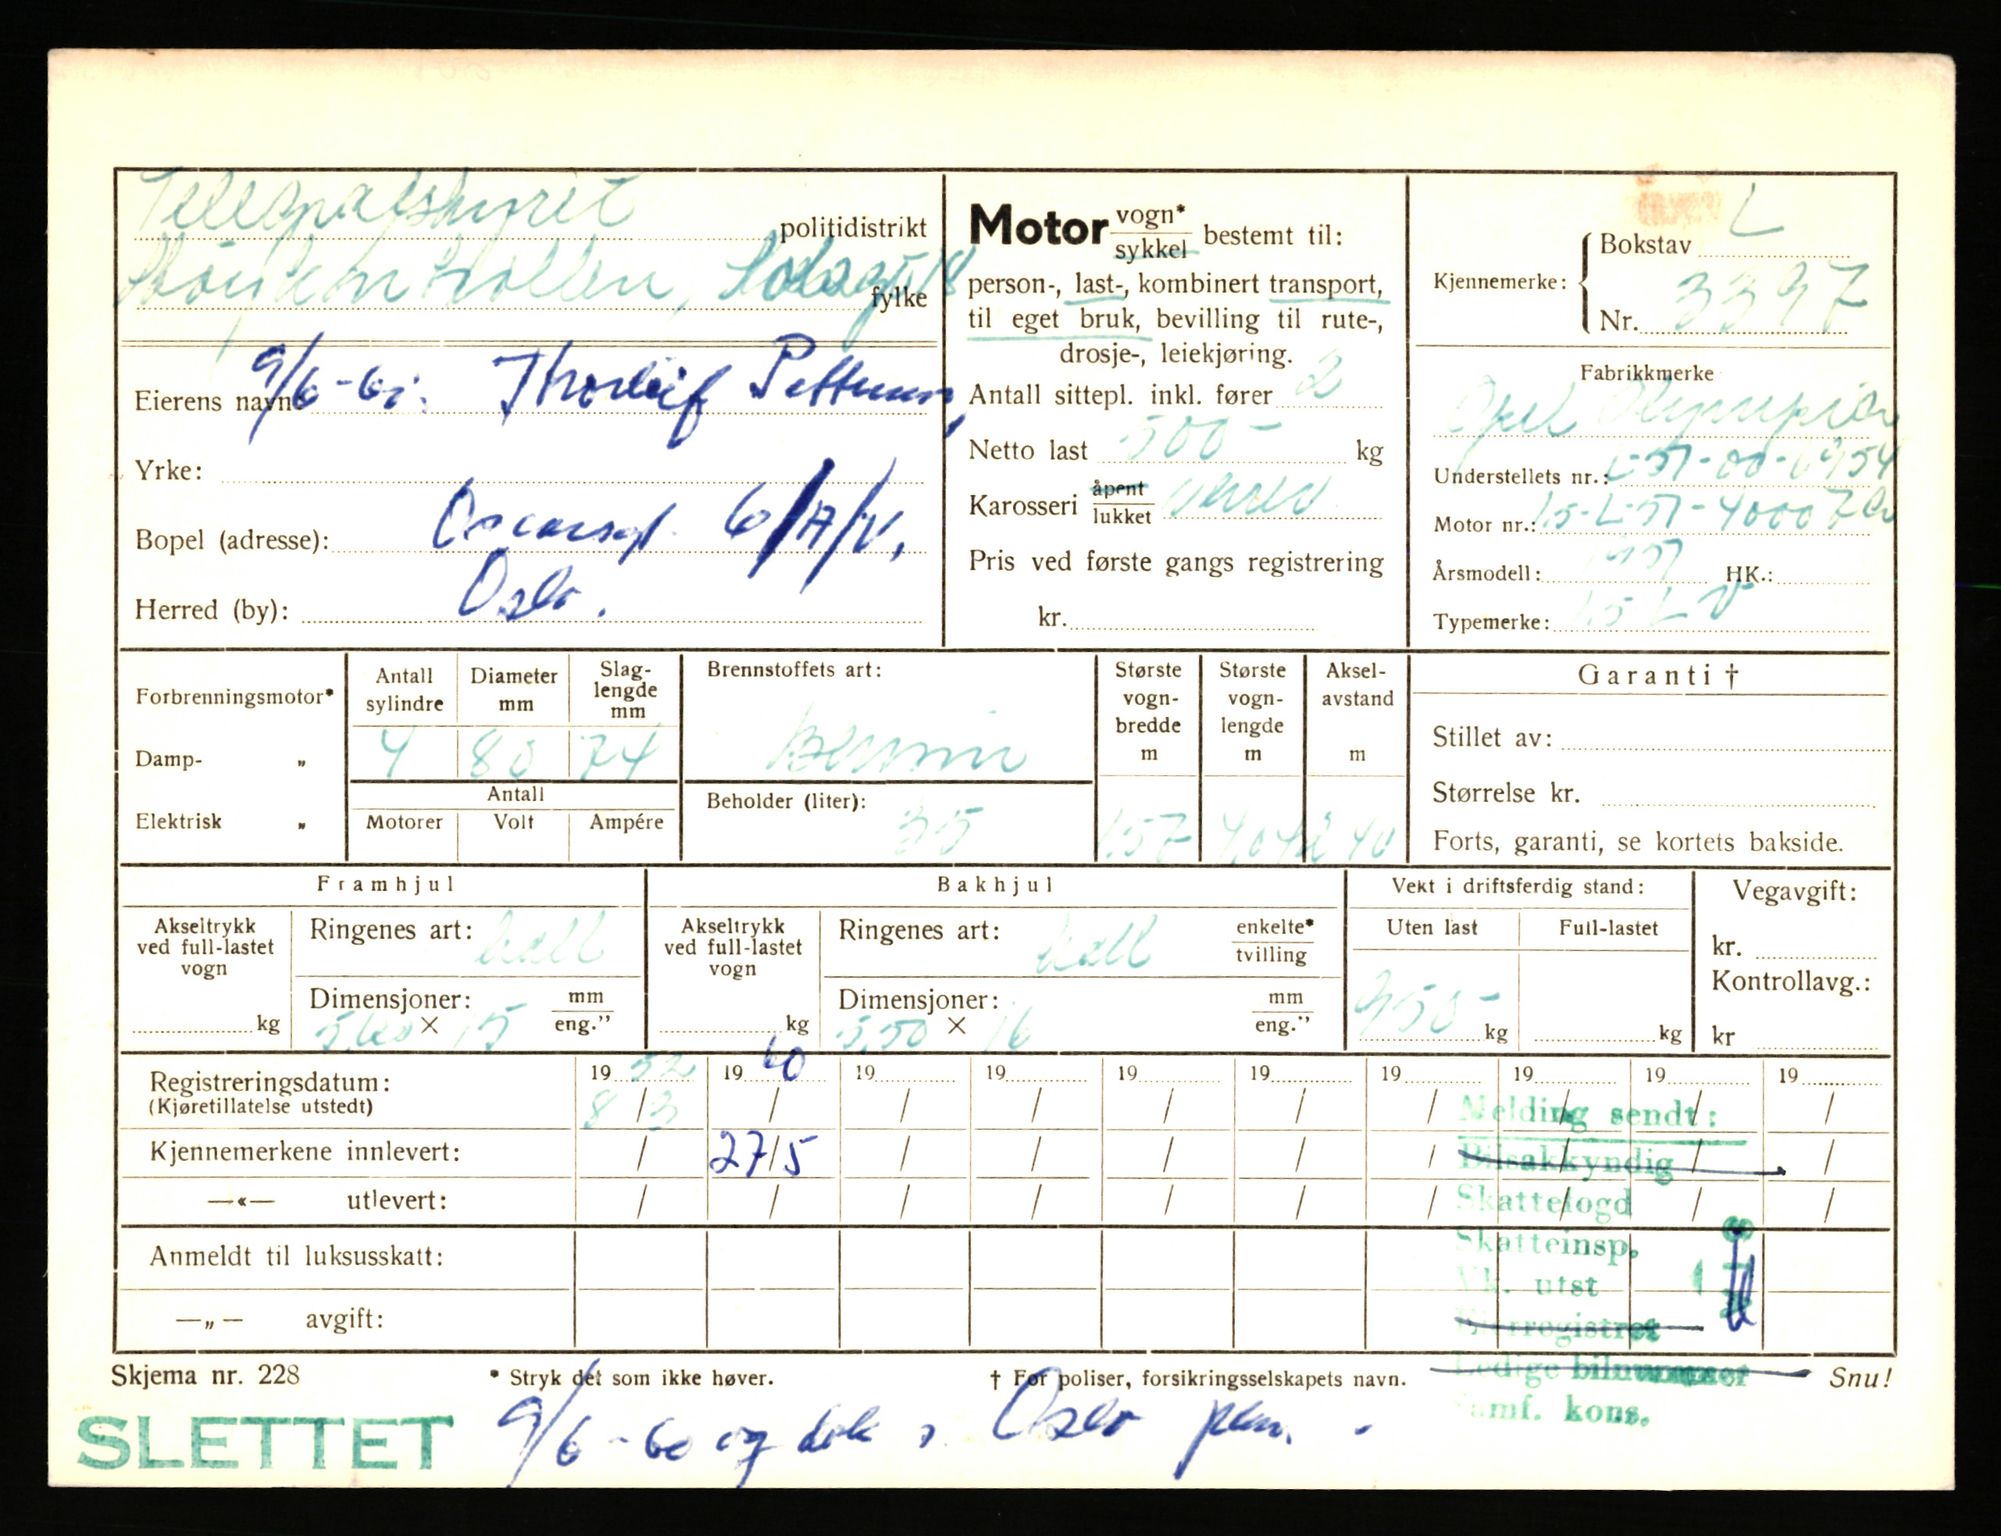 Telegrafstyret
politidistrikt
fylke
9/6-60. Thorleif
Eierens navn:
Yrke:
Bopel (adresse): Oscarsgt. 6/A/V,
Herred (by): Oslo.
Motor vogn*
sykkel bestemt til:
person-, last-, kombinert transport,
til eget bruk, bevilling til rute-,
drosje-, leiekjøring.
Antall sittepl. inkl. fører 2
Netto last 500- kg
Karosseri åpent
lukket varev
Pris ved første gangs registrering
kr.
Kjennemerke:
Bokstav L
Nr. 3397
Fabrikkmerke
Opel Olympia
Understellets nr.: L-51-00-6954
Motor nr.: 1.5-L-51-40007
Årsmodell: 1951 HK.:
Typemerke: 1.5 L V
Forbrenningsmotor*
Damp- „
Elektrisk „
Antall sylindre
Diameter mm
Slag-lengde mm
4 80 74
Antall
Motorer Volt Ampére
Brennstoffets art:
Bensin
Beholder (liter):
35
Største vogn-bredde m
1.57
Største vogn-lengde m
4,04
Aksel-avstand m
2 40
Garanti †
Stillet av:
Størrelse kr.
Forts, garanti, se kortets bakside.
Framhjul
Akseltrykk ved full-lastet vogn
kg
Ringenes art: hell
Dimensjoner: mm
5,60 × 15 eng.”
Bakhjul
Akseltrykk ved full-lastet vogn
kg
Ringenes art: hell enkelte*
tvilling
Dimensjoner: mm
5,50 × 16 eng.”
Vekt i driftsferdig stand:
Uten last Full-lastet
950- kg kg
Vegavgift:
kr.
Kontrollavg.:
kr
Registreringsdatum: 19 52 19 60 19 19 19 19 19 19 19 19
(Kjøretillatelse utstedt) 8/3 / / / / / / / / /
Kjennemerkene innlevert: / 27/5 / / / / / / / /
—«— utlevert: / / / / / / / / / /
Anmeldt til luksusskatt:
—„— avgift:
Melding sendt:
Bilsakkyndig
Skattefogd
Skatteinsp.
Vk. utst
Ledige bilnummer
Samf. kons.
Skjema nr. 228
* Stryk det som ikke høver.
† For poliser, forsikringsselskapets navn.
Snu!
SLETTET 9/6-60 og Oslo